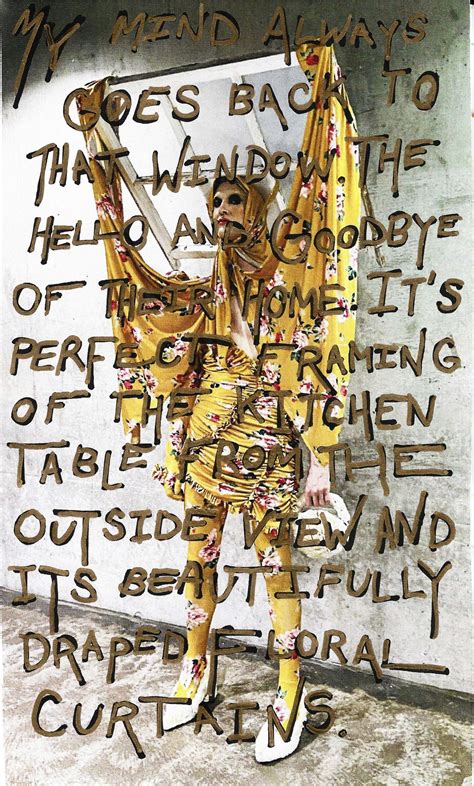 MY MIND ALWAYS
GOES BACK TO
THAT WINDOW THE
HELLO AND GOODBYE
OF THEIR HOME. IT'S
PERFECT FRAMING
OF THE KITCHEN
TABLE FROM THE
OUTSIDE VIEW AND
ITS BEAUTIFULLY
DRAPED FLORAL
CURTAINS.